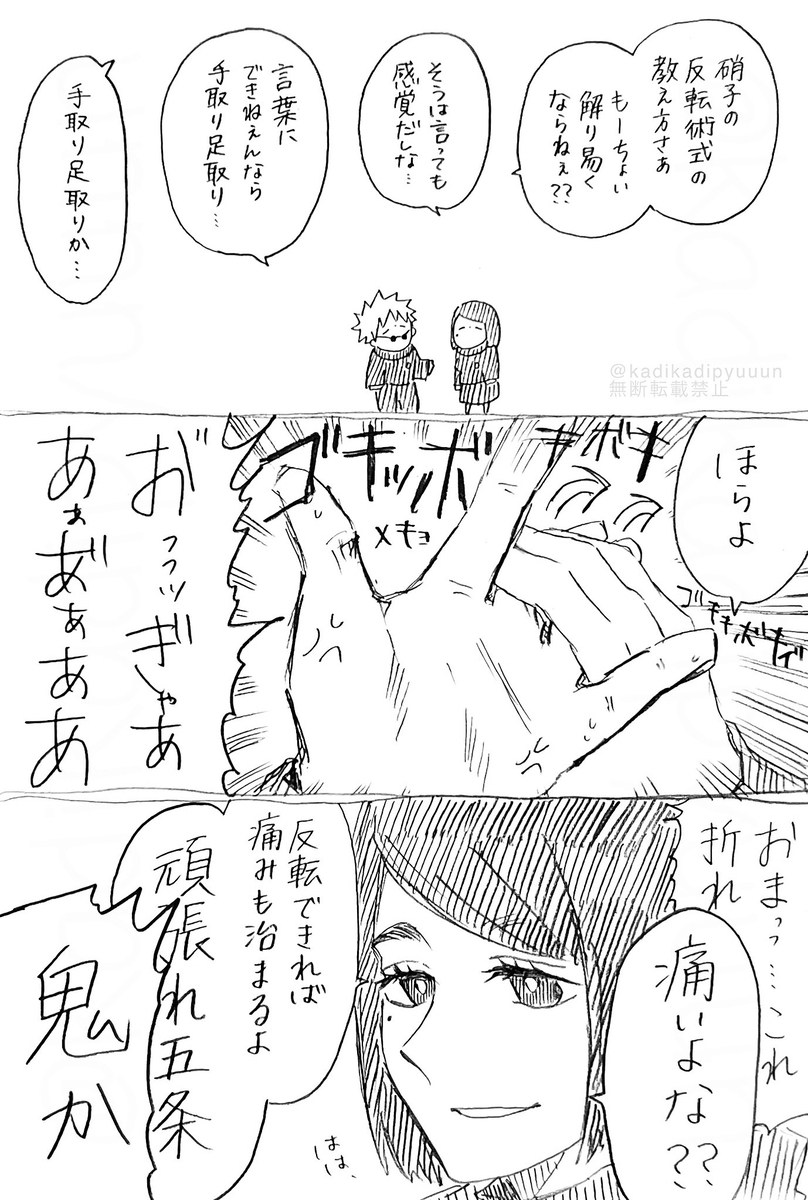 硝子の
反転術式の
教え方さぁ
もーちょい
解り易く
ならねぇ??
そうは言っても
感覚だしな…
言葉に
できねぇんなら
手取り足取り…
手取り足取りか…
@kadikadipyuuun
無断転載禁止
ほらよ
ボキボキ
ゴキッボ
メキョ
お゛っっッぎゃあ
あぁあ゛ぁぁああ
おまっっ…これ
折れ
痛いよな??
反転できれば
痛みも治まるよ
頑張れ五条
はは、
鬼か